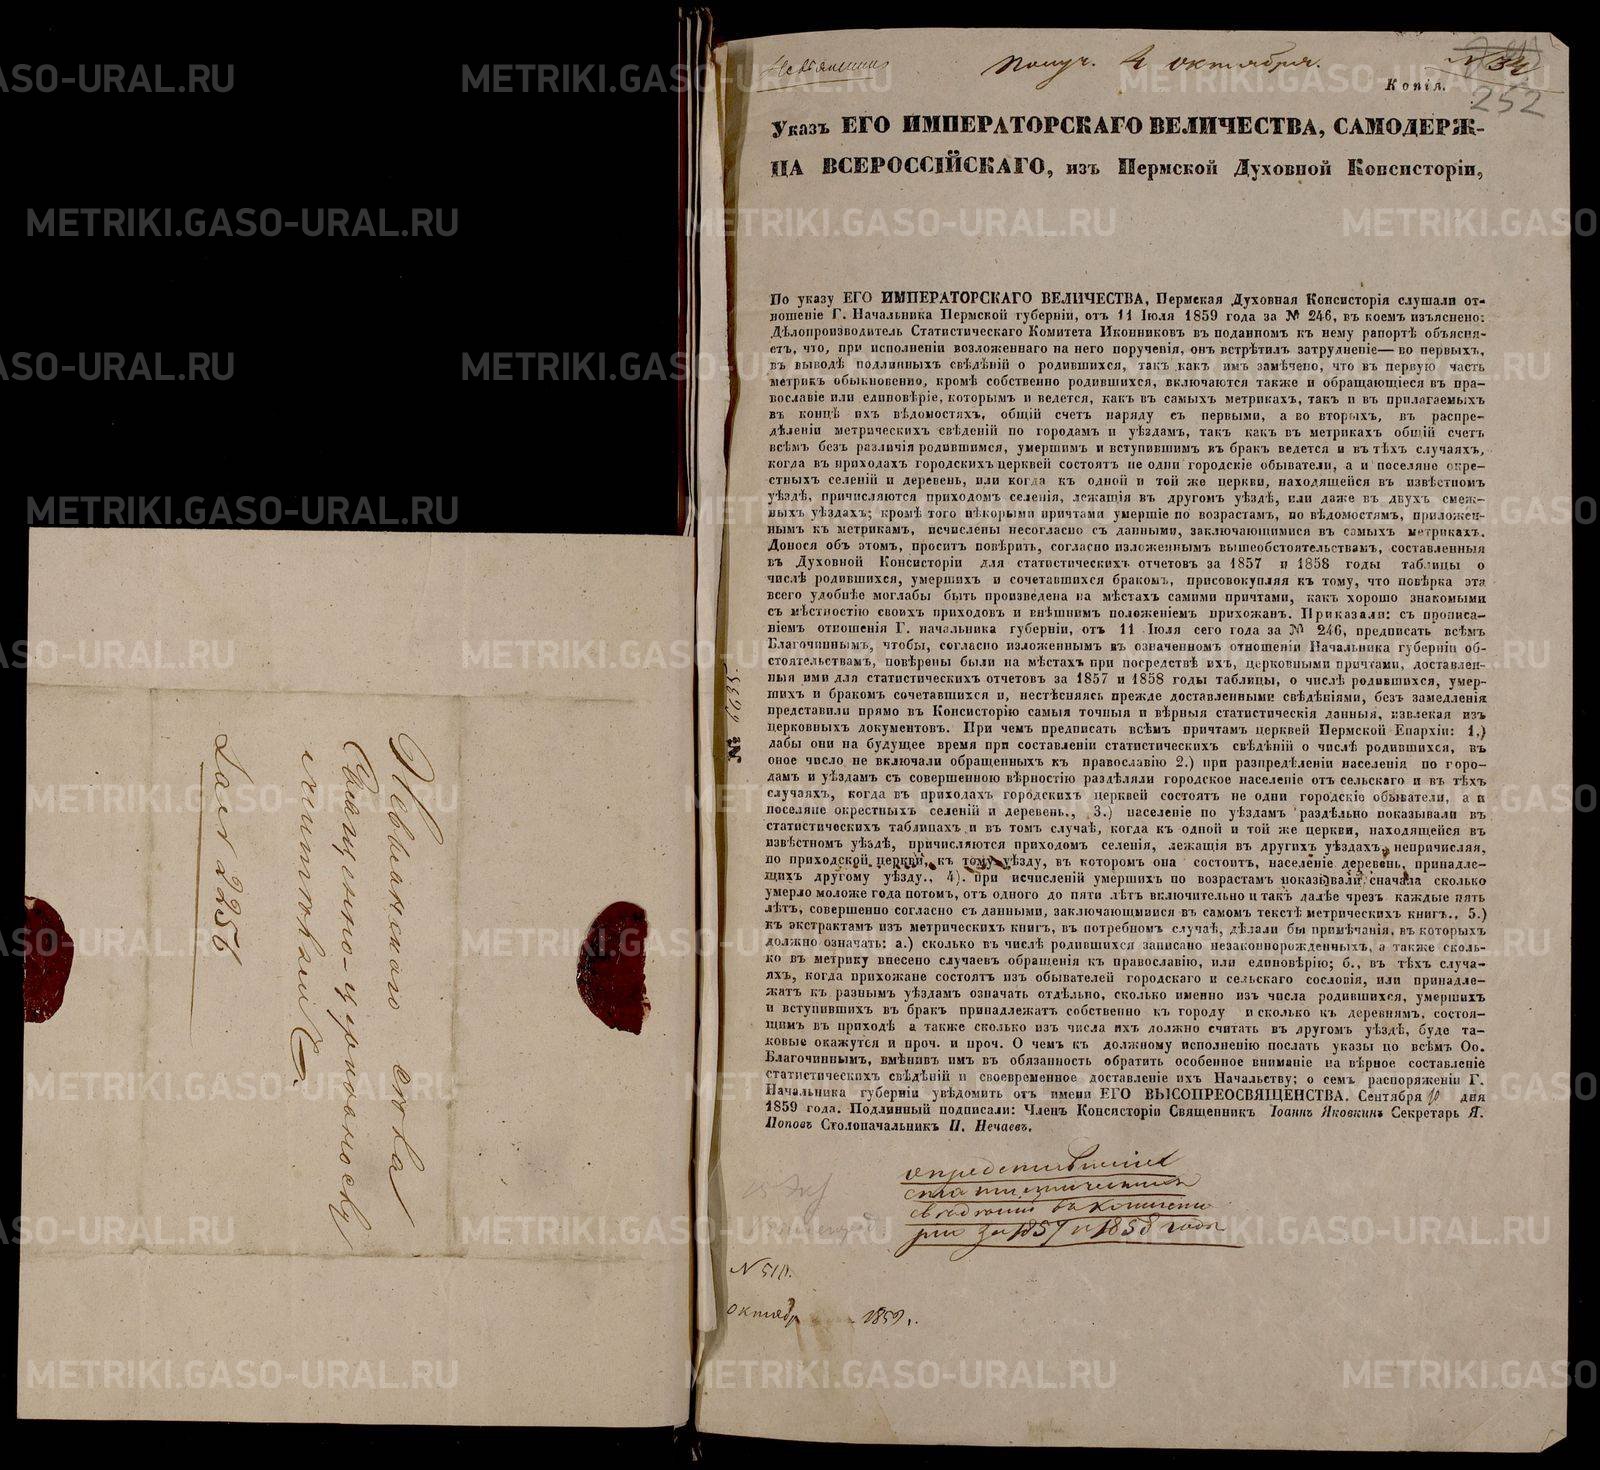 Невьянскаго
Священно-церковнослу
жителямъ
Получ. 4 октября.
№ 34
Копія.
252
Указъ ЕГО ИМПЕРАТОРСКАГО ВЕЛИЧЕСТВА, САМОДЕРЖ-
ЦА ВСЕРОССІЙСКАГО, изъ Пермской Духовной Консисторіи,
По указу ЕГО ИМПЕРАТОРСКАГО ВЕЛИЧЕСТВА, Пермская Духовная Консисторія слушали от-
ношеніе Г. Начальника Пермской губерніи, отъ 11 Іюля 1859 года за № 246, въ коемъ изъяснено:
Дѣлопроизводитель Статистическаго Комитета Иконниковъ въ поданномъ къ нему рапортѣ объясня-
етъ, что, при исполненіи возложеннаго на него порученія, онъ встрѣтилъ затрудненіе— во первыхъ,
въ выводѣ подлинныхъ свѣдѣній о родившихся, такъ какъ имъ замѣчено, что въ первую часть
метрикъ обыкновенно, кромѣ собственно родившихся, включаются также и обращающіеся въ пра-
вославіе или единовѣріе, которымъ и ведется, какъ въ самыхъ метрикахъ, такъ и въ прилагаемыхъ
въ концѣ ихъ вѣдомостяхъ, общій счетъ наряду съ первыми, а во вторыхъ, въ распре-
дѣленіи метрическихъ свѣденій по городамъ и уѣздамъ, такъ какъ въ метрикахъ общій счетъ
всѣмъ безъ различія родившимся, умершимъ и вступившимъ въ бракъ ведется и въ тѣхъ случаяхъ,
когда въ приходахъ городскихъ церквей состоятъ не одни городскіе обыватели, а и поселяне окре-
стныхъ селеній и деревень, или когда къ одной и той же церкви, находящейся въ извѣстномъ
уѣздѣ, причисляются приходомъ селенія, лежащія въ другомъ уѣздѣ, или даже въ двухъ смеж-
ныхъ уѣздахъ; кромѣ того нѣкорыми причтами умершіе по возрастамъ, по вѣдомостямъ, приложен-
нымъ къ метрикамъ, исчислены несогласно съ данными, заключающимися въ самыхъ метрикахъ.
Донося объ этомъ, проситъ повѣрить, согласно изложеннымъ вышеобстоятельствамъ, составленныя
въ Духовной Консисторіи для статистическихъ отчетовъ за 1857 и 1858 годы таблицы о
числѣ родившихся, умершихъ и сочетавшихся бракомъ, присовокупляя къ тому, что повѣрка эта
всего удобнѣе моглабы быть произведена на мѣстахъ самими причтами, какъ хорошо знакомыми
съ мѣстностію своихъ приходовъ и внѣшнимъ положеніемъ прихожанъ. Приказали: съ прописа-
ніемъ отношенія Г. начальника губерніи, отъ 11 Іюля сего года за № 246, предписать всѣмъ
Благочиннымъ, чтобы, согласно изложеннымъ въ означенномъ отношеніи Начальника губерніи об-
стоятельствамъ, повѣрены были на мѣстахъ при посредствѣ ихъ, церковными причтами, доставлен-
ныя ими для статистическихъ отчетовъ за 1857 и 1858 годы таблицы, о числѣ родившихся, умер-
шихъ и бракомъ сочетавшихся и, нестѣсняясь прежде доставленными свѣдѣніями, безъ замедленія
представили прямо въ Консисторію самыя точныя и вѣрныя статистическія данныя, извлекая изъ
церковныхъ документовъ. При чемъ предписать всѣмъ причтамъ церквей Пермской Епархіи: 1.)
дабы они на будущее время при составленіи статистическихъ свѣдѣній о числѣ родившихся, въ
оное число не включали обращенныхъ къ православію 2.) при разпредѣленіи населенія по горо-
дамъ и уѣздамъ съ совершенною вѣрностію раздѣляли городское населеніе отъ сельскаго и въ тѣхъ
случаяхъ, когда въ приходахъ городскихъ церквей состоятъ не одни городскіе обыватели, а и
поселяне окрестныхъ селеній и деревень., 3.) населеніе по уѣздамъ раздѣльно показывали въ
статистическихъ таблицахъ и въ томъ случаѣ, когда къ одной и той же церкви, находящейся въ
извѣстномъ уѣздѣ, причисляются приходомъ селенія, лежащія въ другихъ уѣздахъ, непричисляя,
по приходской церкви, къ тому уѣзду, въ которомъ она состоитъ, населеніе деревень, принадле-
щихъ другому уѣзду., 4). при исчисленій умершихъ по возрастамъ показывали сначала сколько
умерло моложе года потомъ, отъ одного до пяти лѣтъ включительно и такъ далѣе чрезъ каждые пять
лѣтъ, совершенно согласно съ данными, заключающимися въ самомъ текстѣ метрическихъ книгъ., 5.)
къ экстрактамъ изъ метрическихъ книгъ, въ потребномъ случаѣ, дѣлали бы примѣчанія, въ которыхъ
должно означать: а.) сколько въ числѣ родившихся записано незаконнорожденныхъ, а также сколь-
ко въ метрику внесено случаевъ обращенія къ православію, или единовѣрію; б., въ тѣхъ случа-
яхъ, когда прихожане состоятъ изъ обывателей городскаго и сельскаго сословія, или принадле-
жатъ къ разнымъ уѣздамъ означать отдѣльно, сколько именно изъ числа родившихся, умершихъ
и вступившихъ въ бракъ принадлежатъ собственно къ городу и сколько къ деревнямъ, состоя-
щимъ въ приходѣ а также сколько изъ числа ихъ должно считать въ другомъ уѣздѣ, буде та-
ковые окажутся и проч. и проч. О чемъ къ должному исполненію послать указы по всѣмъ Оо.
Благочиннымъ, вмѣнивъ имъ въ обязанность обратить особенное вниманіе на вѣрное составленіе
статистическихъ свѣдѣній и своевременное доставленіе ихъ Начальству; о семъ распоряженіи Г.
Начальника губерніи увѣдомить отъ имени ЕГО ВЫСОПРЕОСВЯЩЕНСТВА. Сентября 10 дня
1859 года. Подлинный подписали: Членъ Консисторіи Священникъ Іоаннъ Яковкинъ Секретарь Я.
Поповъ Столоначальникъ П. Нечаевъ.
о представленіи
статистическихъ
сведеній въ консисто
рію за 1857 и 1858 года
октябр 1859 г.
METRIKI.GASO-URAL.RU